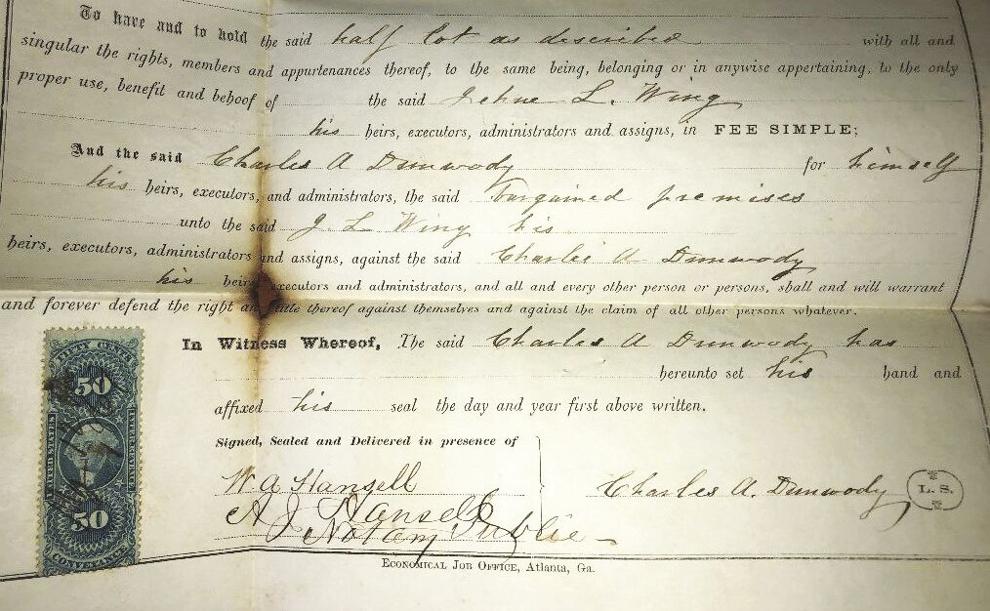 To have and to hold the said half lot as described with all and
singular the rights, members and appurtenances thereof, to the same being, belonging or in anywise appertaining, to the only
proper use, benefit and behoof of the said Jehue L. Wing
his heirs, executors, administrators and assigns, in FEE SIMPLE;
And the said Charles A Dunwody for himself
his heirs, executors, and administrators, the said bargained premises
unto the said J. L Wing his
heirs, executors, administrators and assigns, against the said Charlie A Dunwody
his heirs executors and administrators, and all and every other person or persons, shall and will warrant
and forever defend the right and title thereof against themselves and against the claim of all other persons whatever.
In Witness Whereof, The said Charles A Dunwody has
hereunto set his hand and
affixed his seal the day and year first above written.
Signed, Sealed and Delivered in presence of
W. A Hansell
A J Hansell
Notary Public
Charles A. Dunwody L. S.
FIFTY CENTS
50
UNITED STATES
INTER. REVENUE
50
CONVEYANCE
ECONOMICAL JOB OFFICE, Atlanta, Ga.